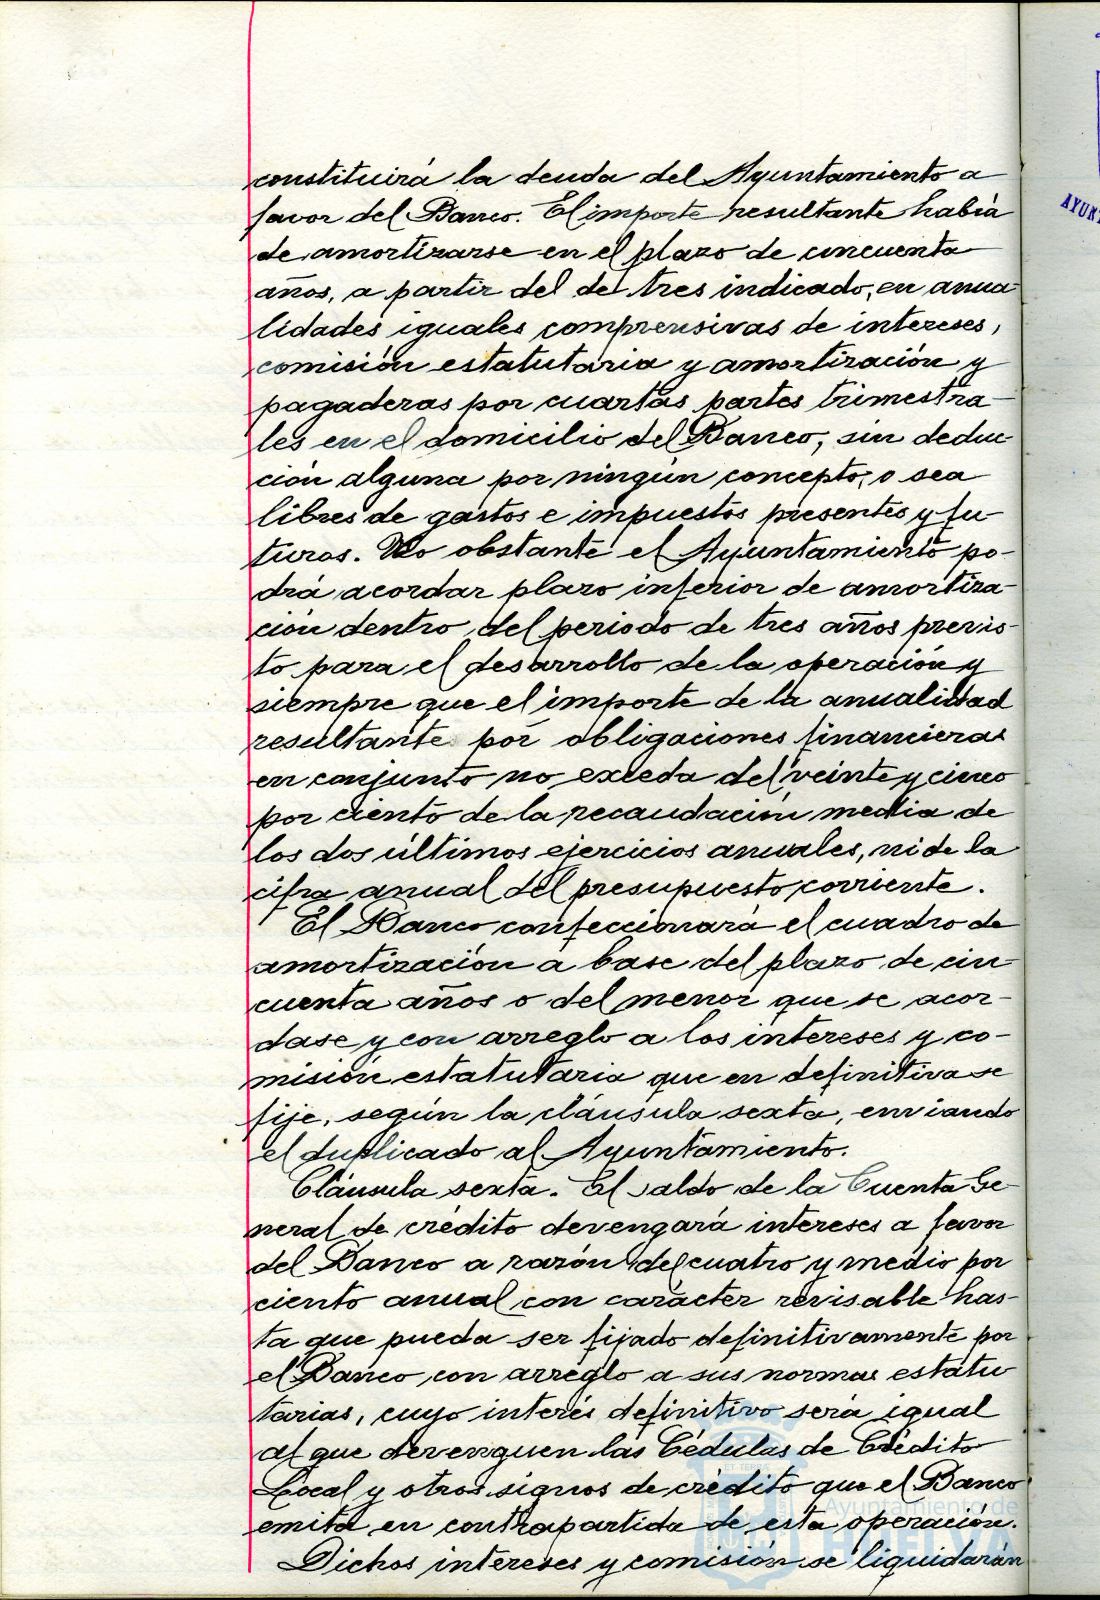 constituirá la deuda del Ayuntamiento a
favor del Banco. El importe resultante habrá
de amortizarse en el plazo de cincuenta
años, a partir del de tres indicado, en anua-
lidades iguales comprensivas de intereses,
comisión estatutaria y amortización y
pagaderas por cuartas partes trimestra-
les en el domicilio del Banco, sin deduc-
ción alguna por ningún concepto, o sea
libres de gastos e impuestos presentes y fu-
turos. No obstante el Ayuntamiento po-
drá acordar plazo inferior de amortiza-
ción dentro del periodo de tres años previs-
to para el desarrollo de la operación y
siempre que el importe de la anualidad
resultante por obligaciones financieras
en conjunto no exceda del veinte y cinco
por ciento de la recaudación media de
los dos últimos ejercicios anuales, ni de la
cifra anual del presupuesto corriente.
El Banco confeccionará el cuadro de
amortización a base del plazo de cin-
cuenta años o del menor que se acor-
dase y con arreglo a los intereses y co-
misión estatutaria que en definitiva se
fije, según la cláusula sexta, enviando
el duplicado al Ayuntamiento.
Cláusula sexta. El saldo de la Cuenta Ge-
neral de crédito devengará intereses a favor
del Banco a razón del cuatro y medio por
ciento anual con carácter revisable has-
ta que pueda ser fijado definitivamente por
el Banco con arreglo a sus normas estatu
tarias, cuyo interés definitivo será igual
al que devenguen las Cédulas de Crédito
Local y otros signos de crédito que el Banco
emita en contrapartida de esta operación.
Dichos intereses y comisión se liquidarán
Ayuntamiento de
HUELVA